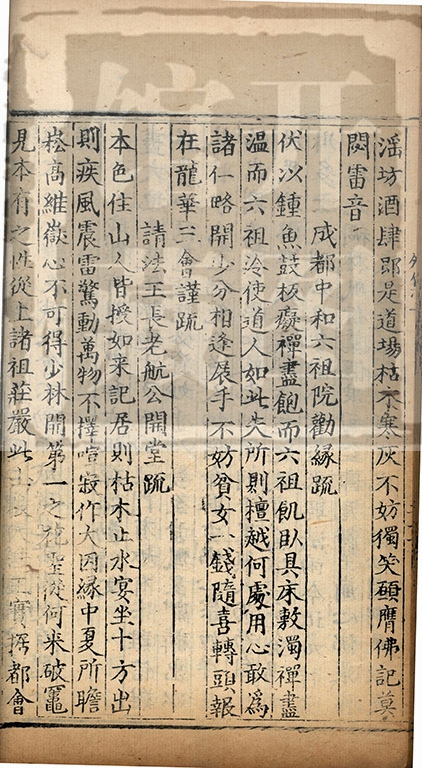 淫坊酒肆即是道場枯木寒灰不妨獨笑願膺佛記莫
閟雷音
成都中和六祖院勸緣疏
伏以鍾魚鼓板癡禪盡飽而六祖飢臥具床敷濁禪盡
温而六祖冷使道人如此失所則檀越何處用心敢爲
諸仁略開少分相逢展手不妨貧女一錢隨喜轉頭報
在龍華三會謹疏
請法王長老航公開堂疏
本色住山人皆授如来記居則枯木止水宴坐十方出
則疾風震雷驚動萬物不擇喧寂作大因緣中夏所瞻
崧高維嶽心不可得少林開第一之花聖從何来破竈
見本有之性從上諸祖莊嚴此山
實据都會